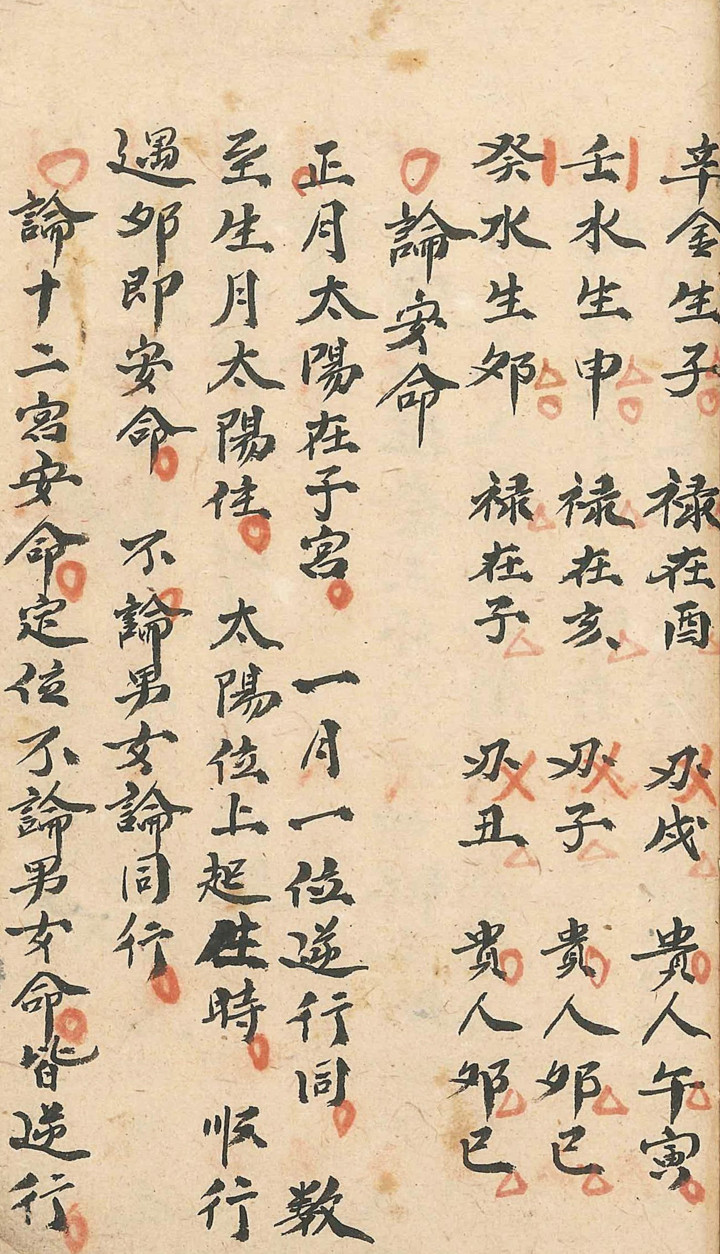 辛金生子 禄在酉 刃戌 貴人午寅
壬水生申 禄在亥 刃子 貴人卯巳
癸水生卯 禄在子 刃丑 貴人卯巳
論安命
正月太陽在子宮 一月一位逆行同 数
至生月太陽住 太陽位上起生時 順行
遇卯即安命 不論男女論同行
論十二宮安命定位不論男女命皆逆行